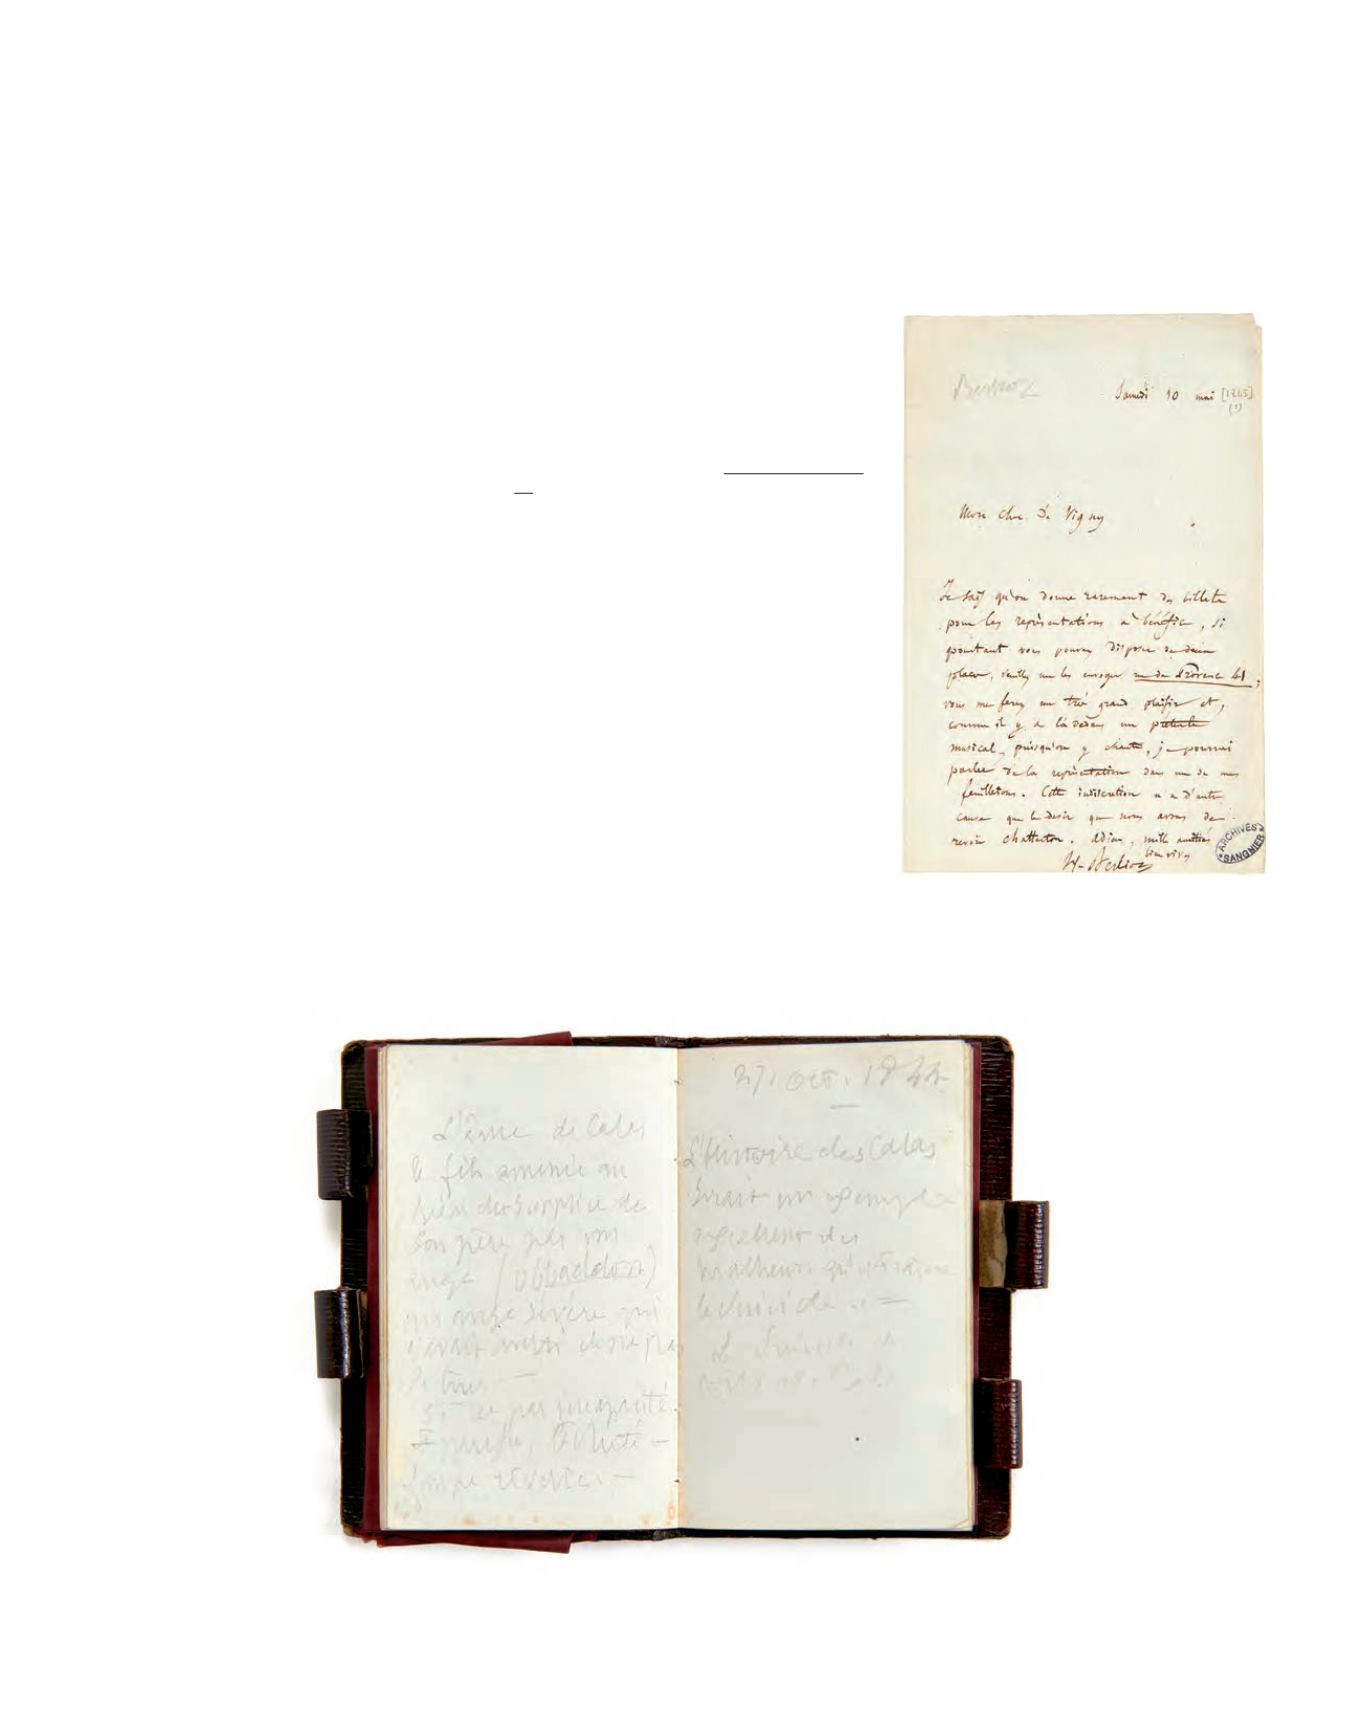 Berlioz
Samedi 10 mai [1845]
(?)
Mon cher De Vigny
Je sais qu'on donne rarement des billets
pour les représentations à bénéfice, si
pourtant vous pouvez disposer de deux
places, veuillez me les envoyer rue de Provence 41;
vous me ferez un très grand plaisir et,
comme il y a là dedans un prétexte
musical, puisqu'on y chante, je pourrai
parler de la représentation dans un de mes
feuilletons. Cette indiscrétion n'a d'autre
cause que le désir que nous avons de
revoir Chatterton. Adieu, mille amitiés
bien vives
H. Berlioz
ARCHIVES
SANGNIER
L'âme de Calas
le fils amenée au
lieu du supplice de
son père par un
ange (abbaddon)
un ange sévère qui
par incapacité
27 oct. 1844
L'histoire des Calas
serait un exemple
excellent des
malheurs qu'entraîne
le suicide